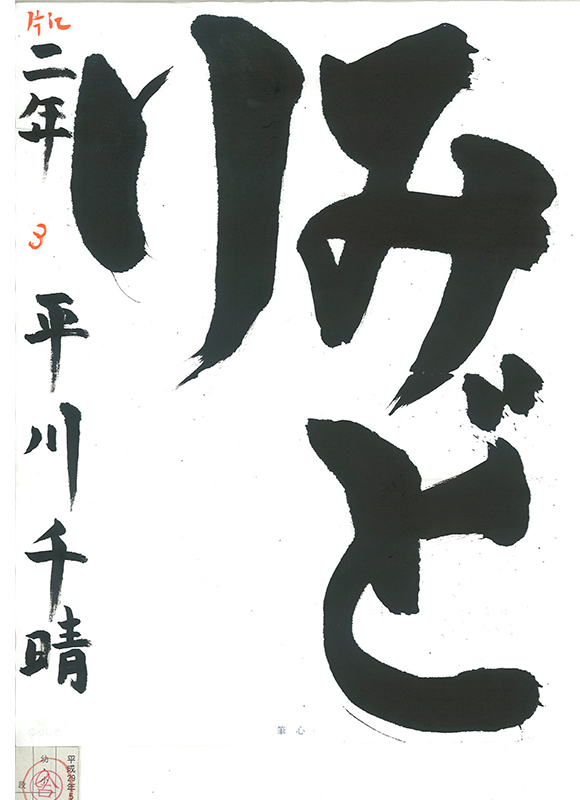 みど
り
片江
二年
3
平川千晴
筆心
平成29年5
幼・小
段